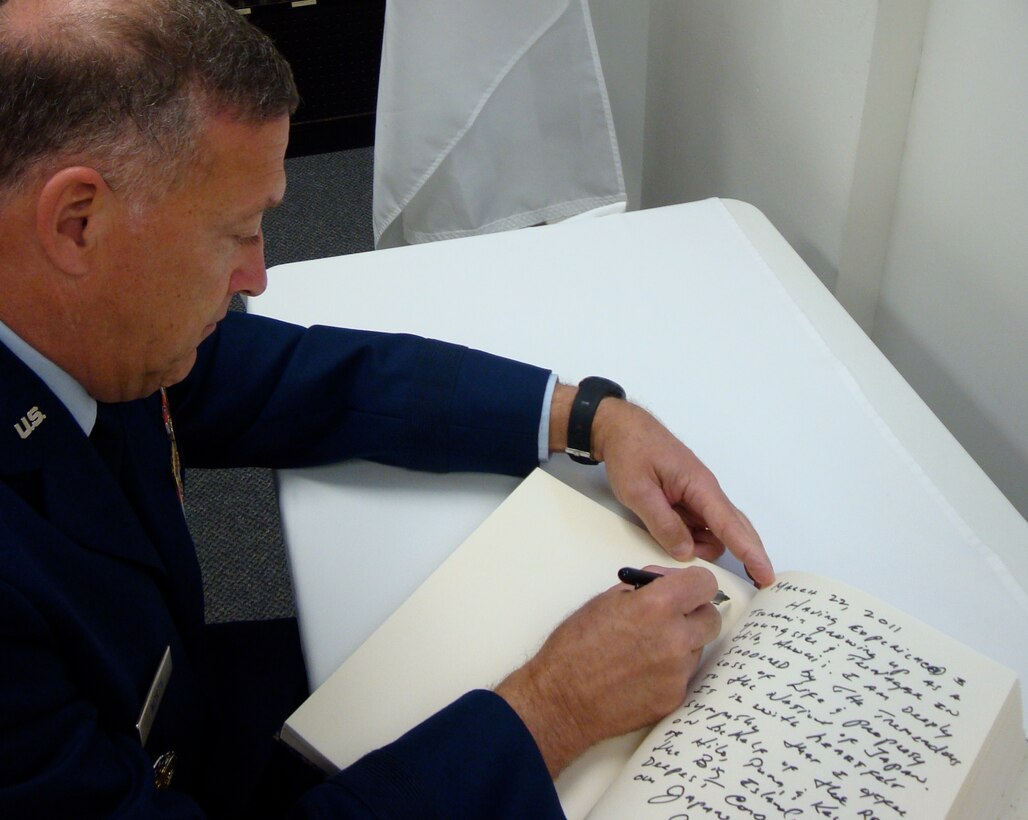 U.S.
MARCH 22, 2011
HAVING EXPERIENCED
TSUNAMI GROWING UP AS A
YOUNGSTER & TEENAGER IN
HILO, HAWAII. I AM DEEPLY
SADDENED BY THE TREMENDOUS
LOSS OF LIFE & PROPERTY
IN THE NATION OF JAPAN.
IT IS WITH HEARTFELT
SYMPATHY THAT I OFFER
ON BEHALF OF THE
OF HILO, PUNA, &
THE BIG ISLAND
DEEPEST
ON
JAPAN